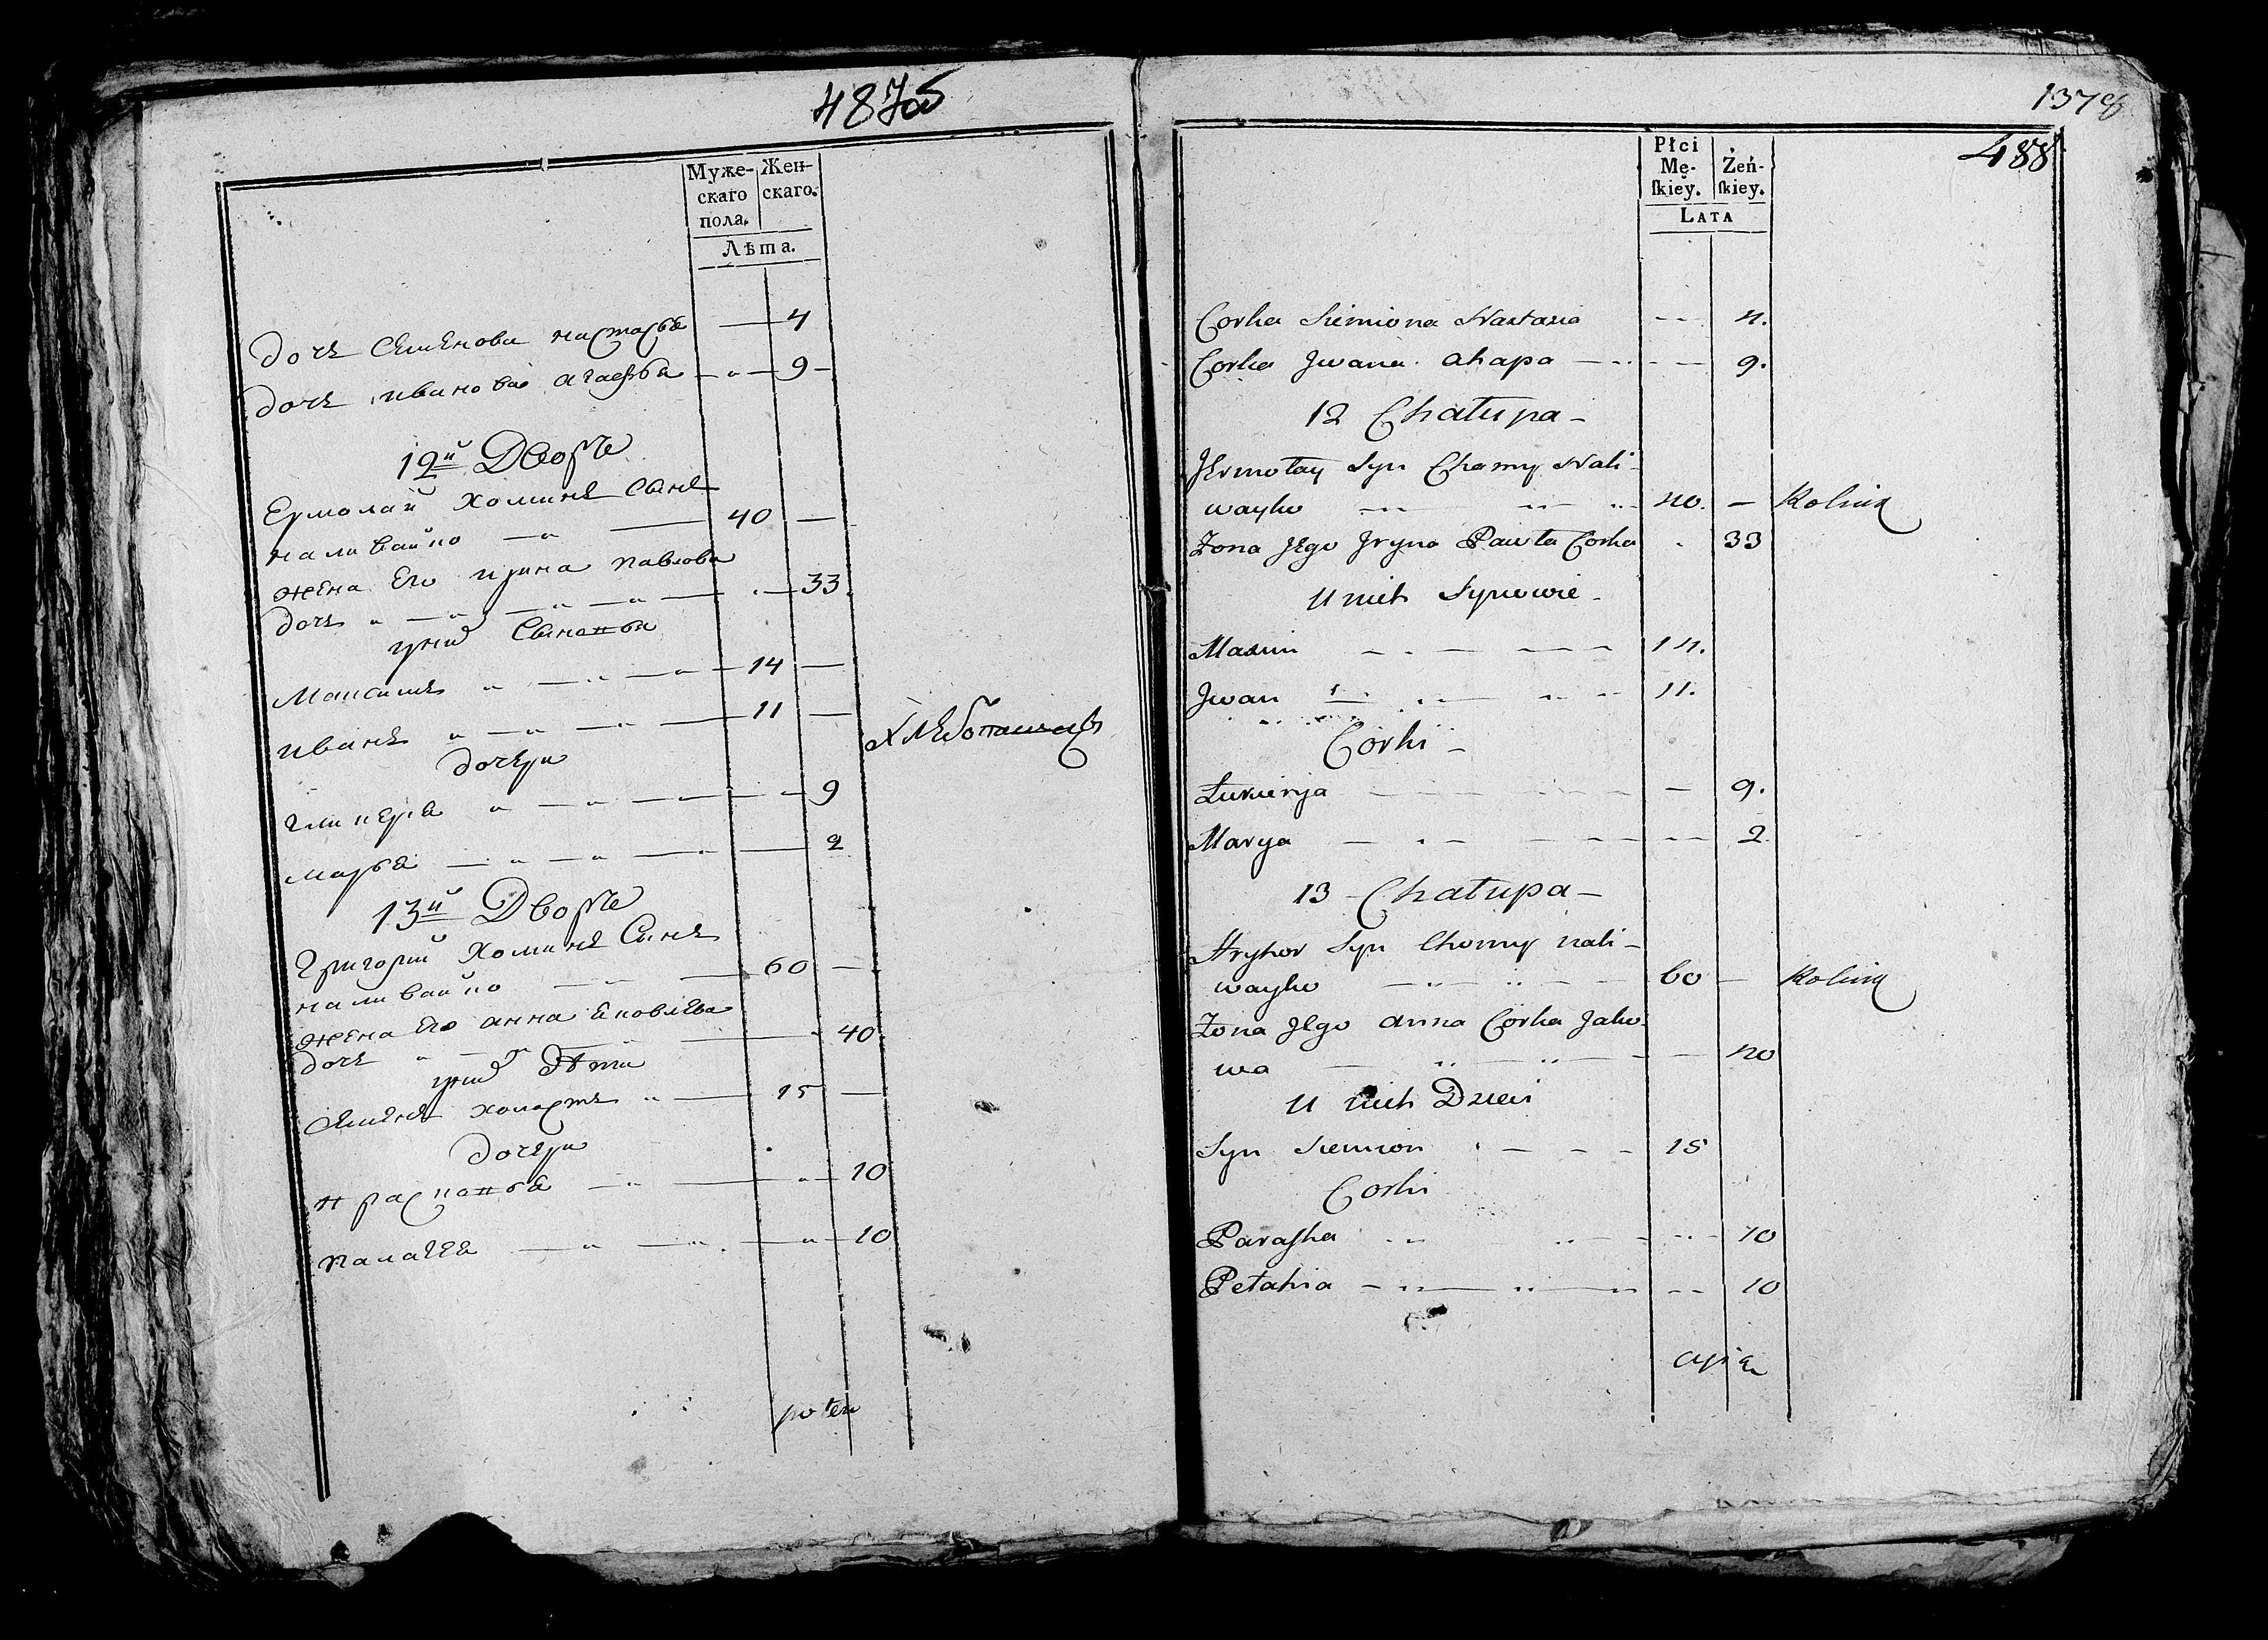 487об
Муже-
скаго
пола.
Жен-
скаго.
Лѣта.
дочь Семенова настасья — 4
дочь иванова агафья — 9 —
12й Дворъ
Ермолай хоминъ Сынъ
наливайко — 40 —
жена Его ирина павлова
дочь — 33
у них Сыновья
Максимъ — 14 —
иванъ — 11 —
дочери
гликерья — 9
марья — 2
13й Дворъ
Григорий хоминъ Сынъ
наливайко — 60 —
жена Его анна Яковлева
дочь — 40
у них Дѣти
Семенъ — 15 —
дочери
10
10
1378
488
Płci
Mę-
ſkiey.
Żeń-
ſkiey.
LATA
Corka Siemiona Nastazia — 4.
Corka Jwana ahapa — 9.
12 Chałupa —
Jermołay Syn Chomy Nali-
wayko — 40. — Rolnik
Żona Jego Jryna Pawła Corka 33
U nich Synowie —
Maxim — 14.
Jwan — 11.
Corki —
Łukierya — 9.
Marya — 2.
13 Chałupa —
Hryhor Syn Chomy nali-
wayko — 60 — Rolnik
Żona Jego anna Corka Jako-
wa — 40
U nich Dzieci
Syn Siemion — 15
Corki
Paraſka — 10
Pełahia — 10